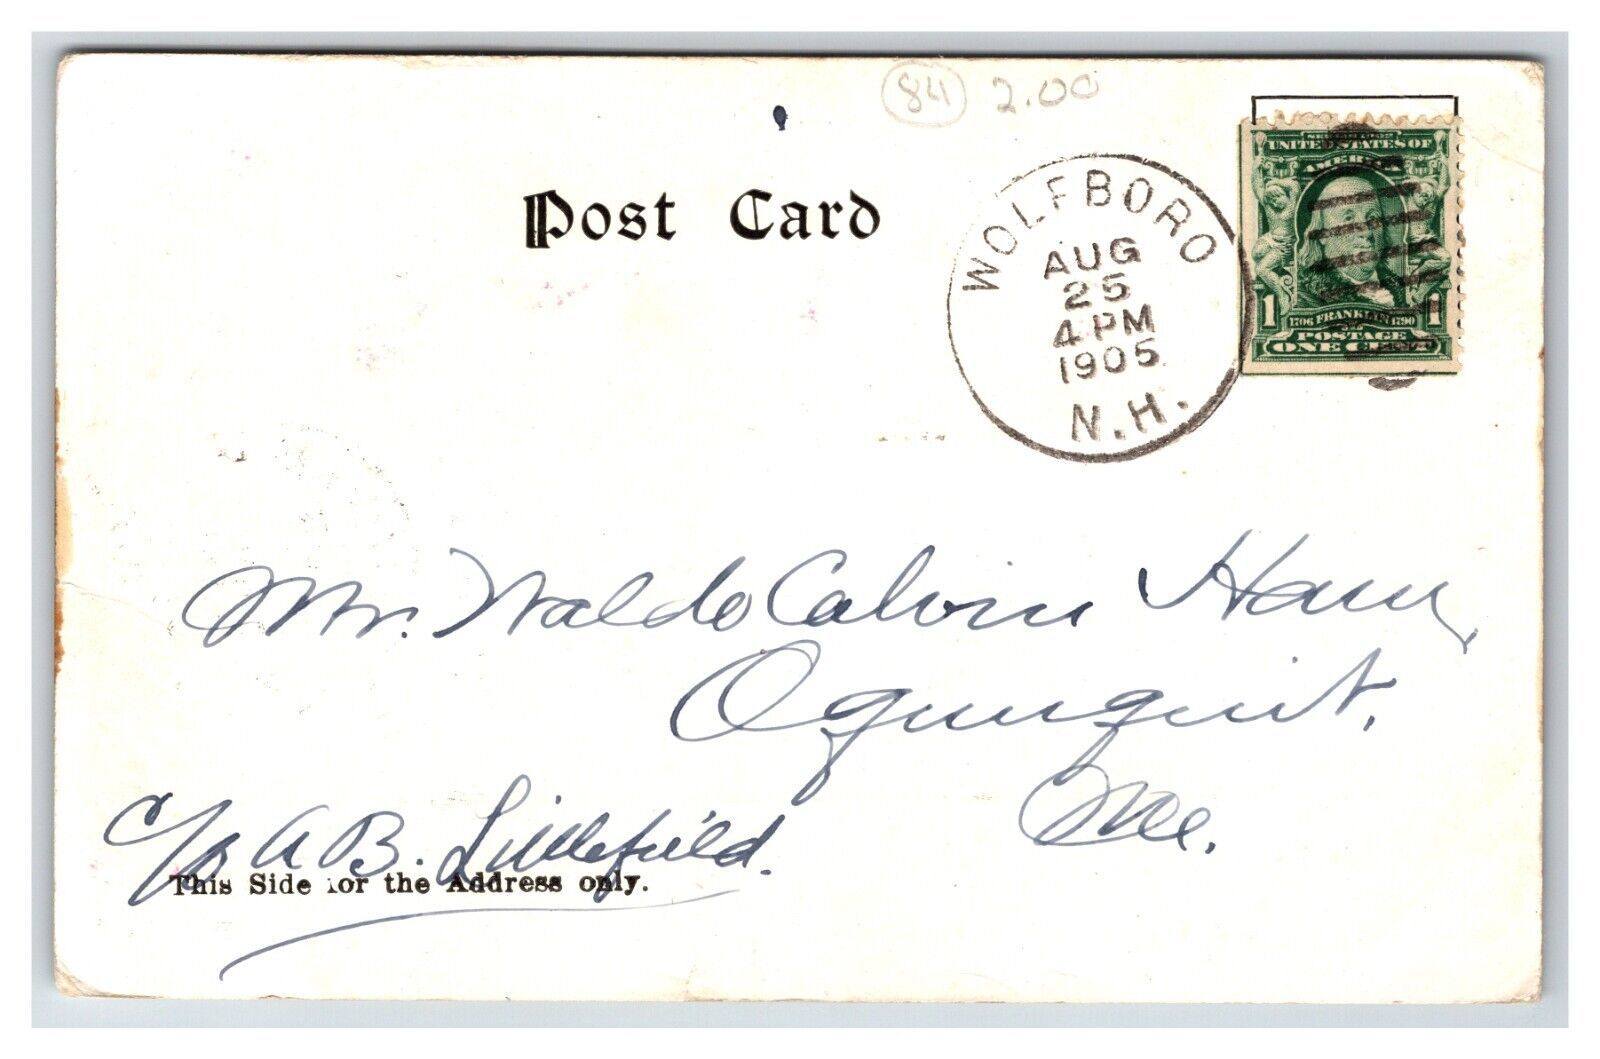 84 2.00
Post Card
WOLFBORO
AUG
25
4 PM
1905
N.H.
SERIES 1902
UNITED STATES OF
AMERICA
1 1706 FRANKLIN 1790 1
POSTAGE
ONE CENT
Mr. Waldo Calvin Ham,
Ogunquit,
Me.
c/o A B. Littlefield.
This Side for the Address only.